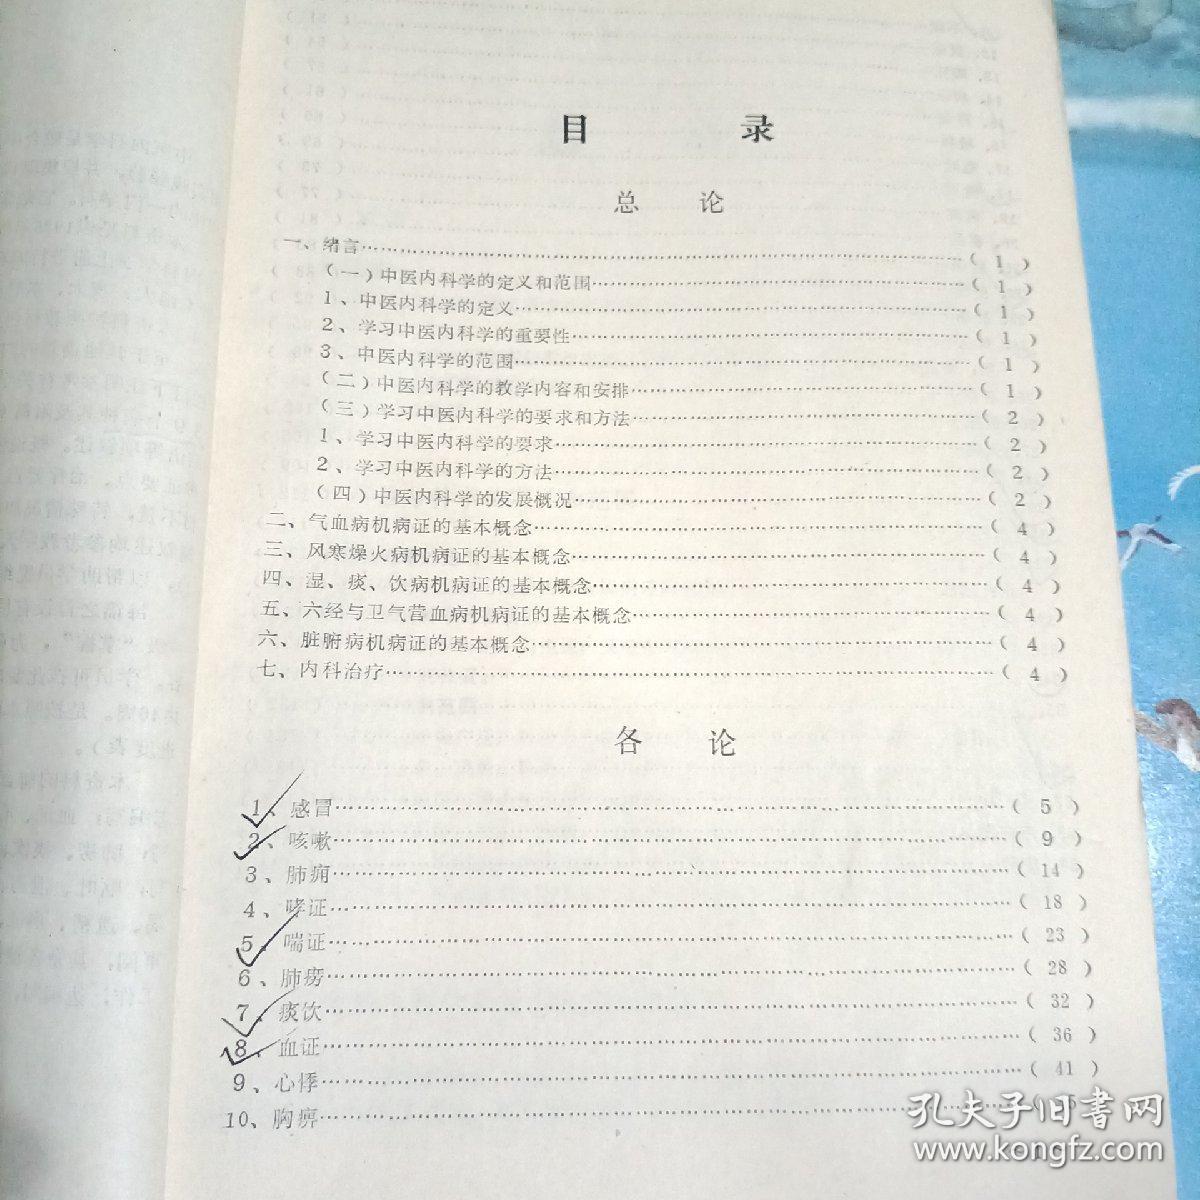 目 录
总 论
一、绪言……………………( 1 )
(一)中医内科学的定义和范围……………………( 1 )
1、中医内科学的定义……………………( 1 )
2、学习中医内科学的重要性……………………( 1 )
3、中医内科学的范围……………………( 1 )
(二)中医内科学的教学内容和安排……………………( 1 )
(三)学习中医内科学的要求和方法……………………( 2 )
1、学习中医内科学的要求……………………( 2 )
2、学习中医内科学的方法……………………( 2 )
(四)中医内科学的发展概况……………………( 2 )
二、气血病机病证的基本概念……………………( 4 )
三、风寒燥火病机病证的基本概念……………………( 4 )
四、湿、痰、饮病机病证的基本概念……………………( 4 )
五、六经与卫气营血病机病证的基本概念……………………( 4 )
六、脏腑病机病证的基本概念……………………( 4 )
七、内科治疗……………………( 4 )
各 论
1、感冒……………………( 5 )
2、咳嗽……………………( 9 )
3、肺痈……………………( 14 )
4、哮证……………………( 18 )
5、喘证……………………( 23 )
6、肺痨……………………( 28 )
7、痰饮……………………( 32 )
8、血证……………………( 36 )
9、心悸……………………( 41 )
10、胸痹……………………
孔夫子旧书网
www.kongfz.com